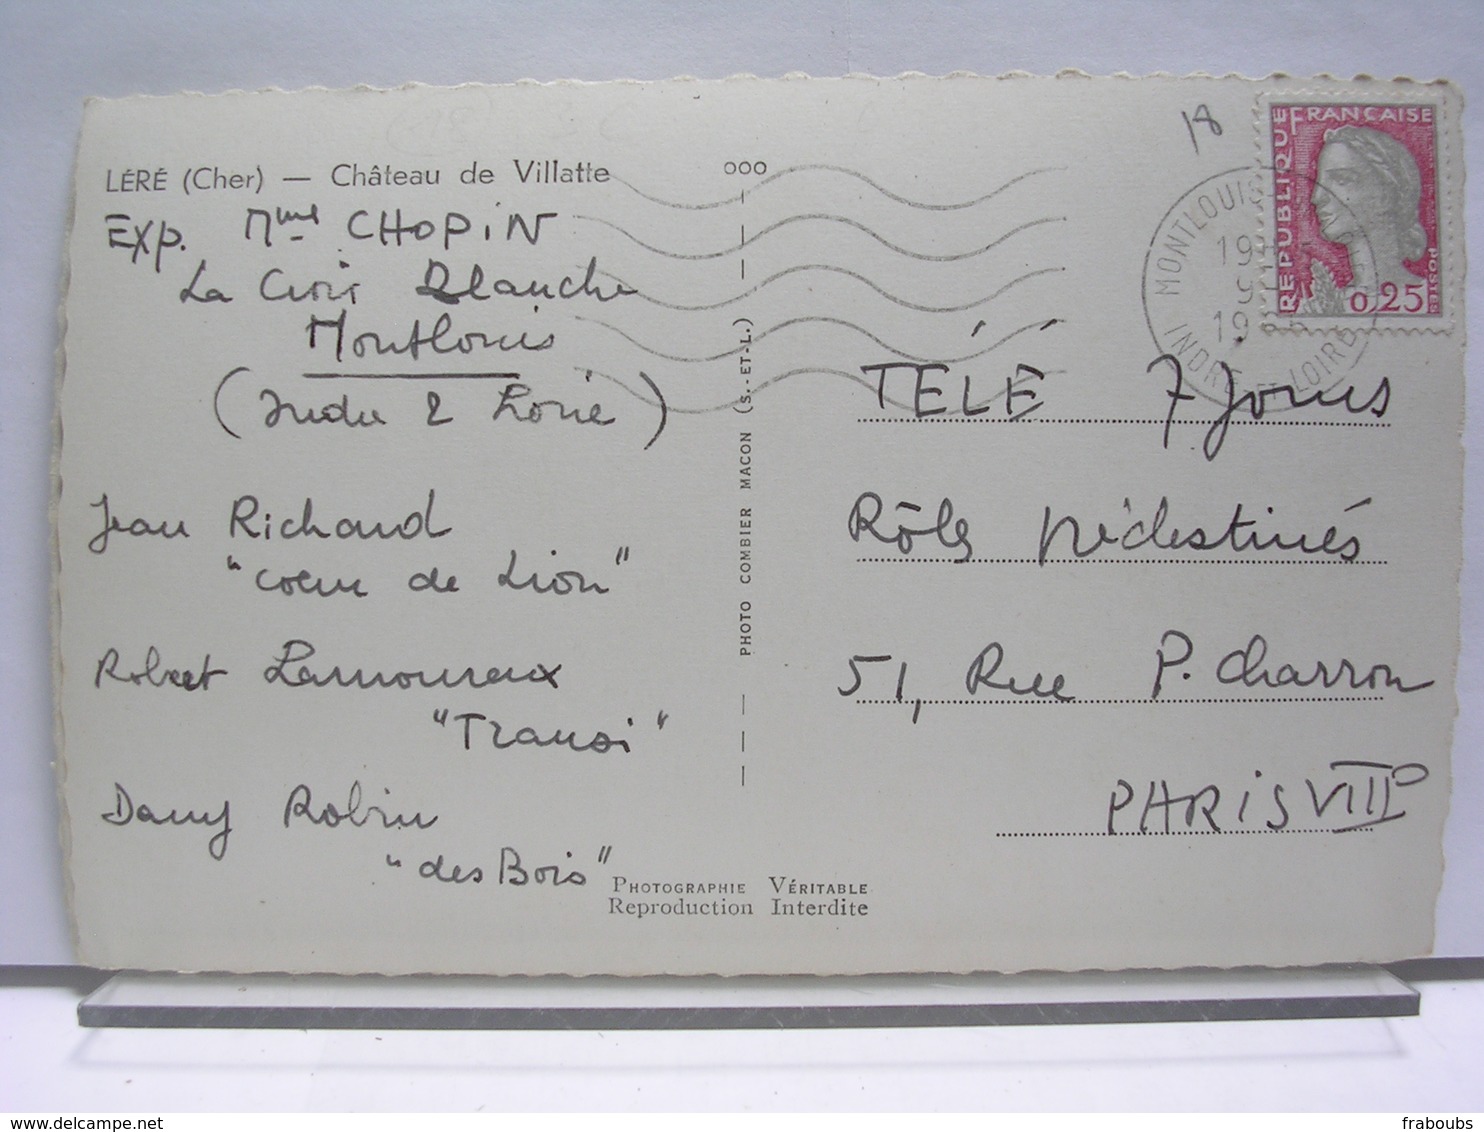 LÉRÉ (Cher) — Château de Villatte
Exp. Mme CHOPIN
La Croix Blanche
Montlouis
(Indre & Loire)
Jean Richard
"coeur de Lion"
Robert Lamoureux
"Transi"
Dany Robin
"des Bois"
PHOTOGRAPHIE VÉRITABLE
Reproduction Interdite
ooo
PHOTO COMBIER MACON (S.-ET-L.)
18
RÉPUBLIQUE FRANÇAISE
POSTES
0,25
MONTLOUIS
INDRE ET LOIRE
TÉLÉ 7 Jours
Rôles Prédestinés
51, Rue P. Charron
PARIS VIIIe
fraboubs